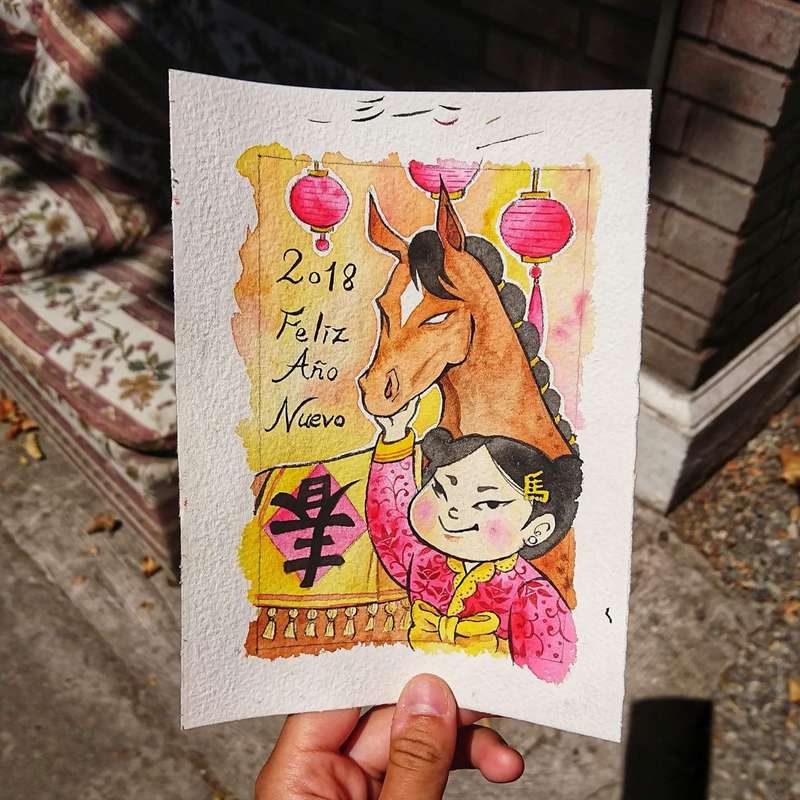 2018
Feliz
Año
Nuevo
馬
春